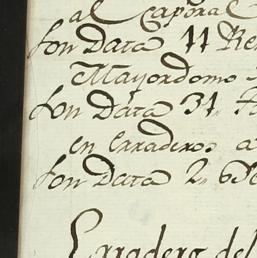 al Caporal
Son Data 11 Re
Mayordomo
Son Data 31.
en Erraderos a
Son Data 2. 6
Erradero del